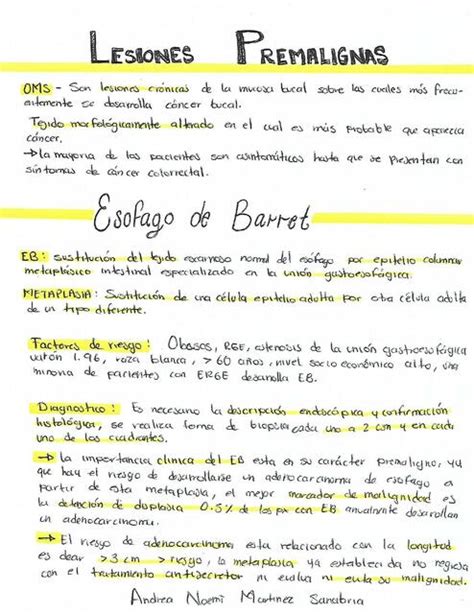 LESIONES PREMALIGNAS
OMS - Son lesiones crónicas de la mucosa bucal sobre las cuales más frecu-
entemente se desarrolla cáncer bucal.
Tejido morfológicamente alterado en el cual es más probable que aparezca
cáncer.
→ la mayoria de los pacientes son asintomáticos hasta que se presentan con
síntomas de cáncer colorrectal.
Esofago de Barret
EB: sustitución del tejido escamoso normal del esófago por epitelio columnar
metaplásico intestinal especializado en la unión gastroesofágica.
METAPLASIA: Sustitución de una célula epitelio adulta por otra célula adulta
de un tipo diferente.
Factores de riesgo: Obesos, RGE, estenosis de la unión gastroesofágica
1.96, raza blanca, > 60 años, nivel socio económico alto, una
minoria de pacientes con ERGE desarrolla EB.
Diagnostico: Es necesario la descripción endoscópica y confirmación
histológica, se realiza toma de biopsia cada uno a 2 cm y en cada
uno de los cuadrantes.
→ la importancia clinica del EB esta en su carácter premaligno, ya
que hay el riesgo de desarrollarse un adenocarcinoma de esofago a
partir de esta metaplasia, el mejor marcador de malignidad es
la detención de displasia 0.5% de los px con EB anualmente desarrollan
un adenocarcinoma.
→ El riesgo de adenocarcinoma esta relacionado con la longitud
es decir >3 cm > riesgo, la metaplasia ya establecida no regresa
con el tratamiento antisecretor ni evita su malignidad.
Andrea Noemi Martinez Sanabria